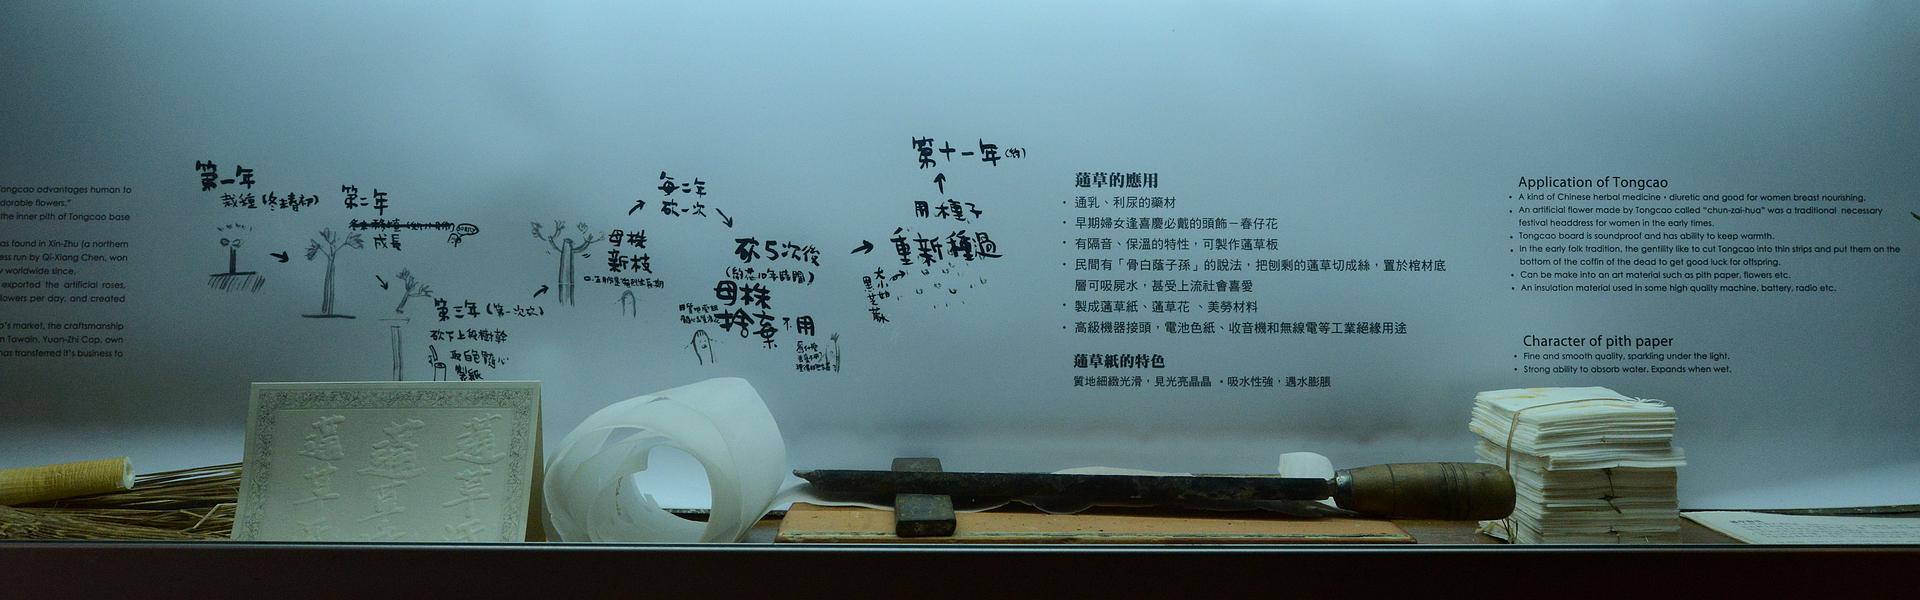 ongcao advantages human to
dorable flowers."
the inner pith of Tongcao base
as found in Xin-Zhu (a northern
ess run by Qi-Xiang Chen, won
y worldwide since.
exported the artificial roses,
lowers per day, and created
o's market, the craftsmanship
n Tawain, Yuan-Zhi Cap, own
has transferred it's business to
第一年
栽種(冬末春初)
第二年
成長
第三年(第一次砍)
砍下上段樹幹
取白色髓心
製紙
母株
新枝
每二年
砍一次
砍5次後
(約花10年時間)
母株
捨棄不用
重新種過
用種子
第十一年(約)
大小如
黑芝麻
蓪草的應用
・通乳、利尿的藥材
・早期婦女逢喜慶必戴的頭飾－春仔花
・有隔音、保溫的特性，可製作蓪草板
・民間有「骨白蔭子孫」的說法，把刨剩的蓪草切成絲，置於棺材底
層可吸屍水，甚受上流社會喜愛
・製成蓪草紙、蓪草花 、美勞材料
・高級機器接頭，電池色紙、收音機和無線電等工業絕緣用途
蓪草紙的特色
質地細緻光滑，見光亮晶晶 ・吸水性強，遇水膨脹
Application of Tongcao
• A kind of Chinese herbal medicine，diuretic and good for women breast nourishing.
• An artificial flower made by Tongcao called "chun-zai-hua" was a traditional necessary
festival headdress for women in the early times.
• Tongcao board is soundproof and has ability to keep warmth.
• In the early folk tradition, the gentility like to cut Tongcao into thin strips and put them on the
bottom of the coffin of the dead to get good luck for offspring.
• Can be make into an art material such as pith paper, flowers etc.
• An insulation material used in some high quality machine, battery, radio etc.
Character of pith paper
• Fine and smooth quality, sparkling under the light.
• Strong ability to absorb water. Expands when wet.
蓪草
蓪草
蓪草